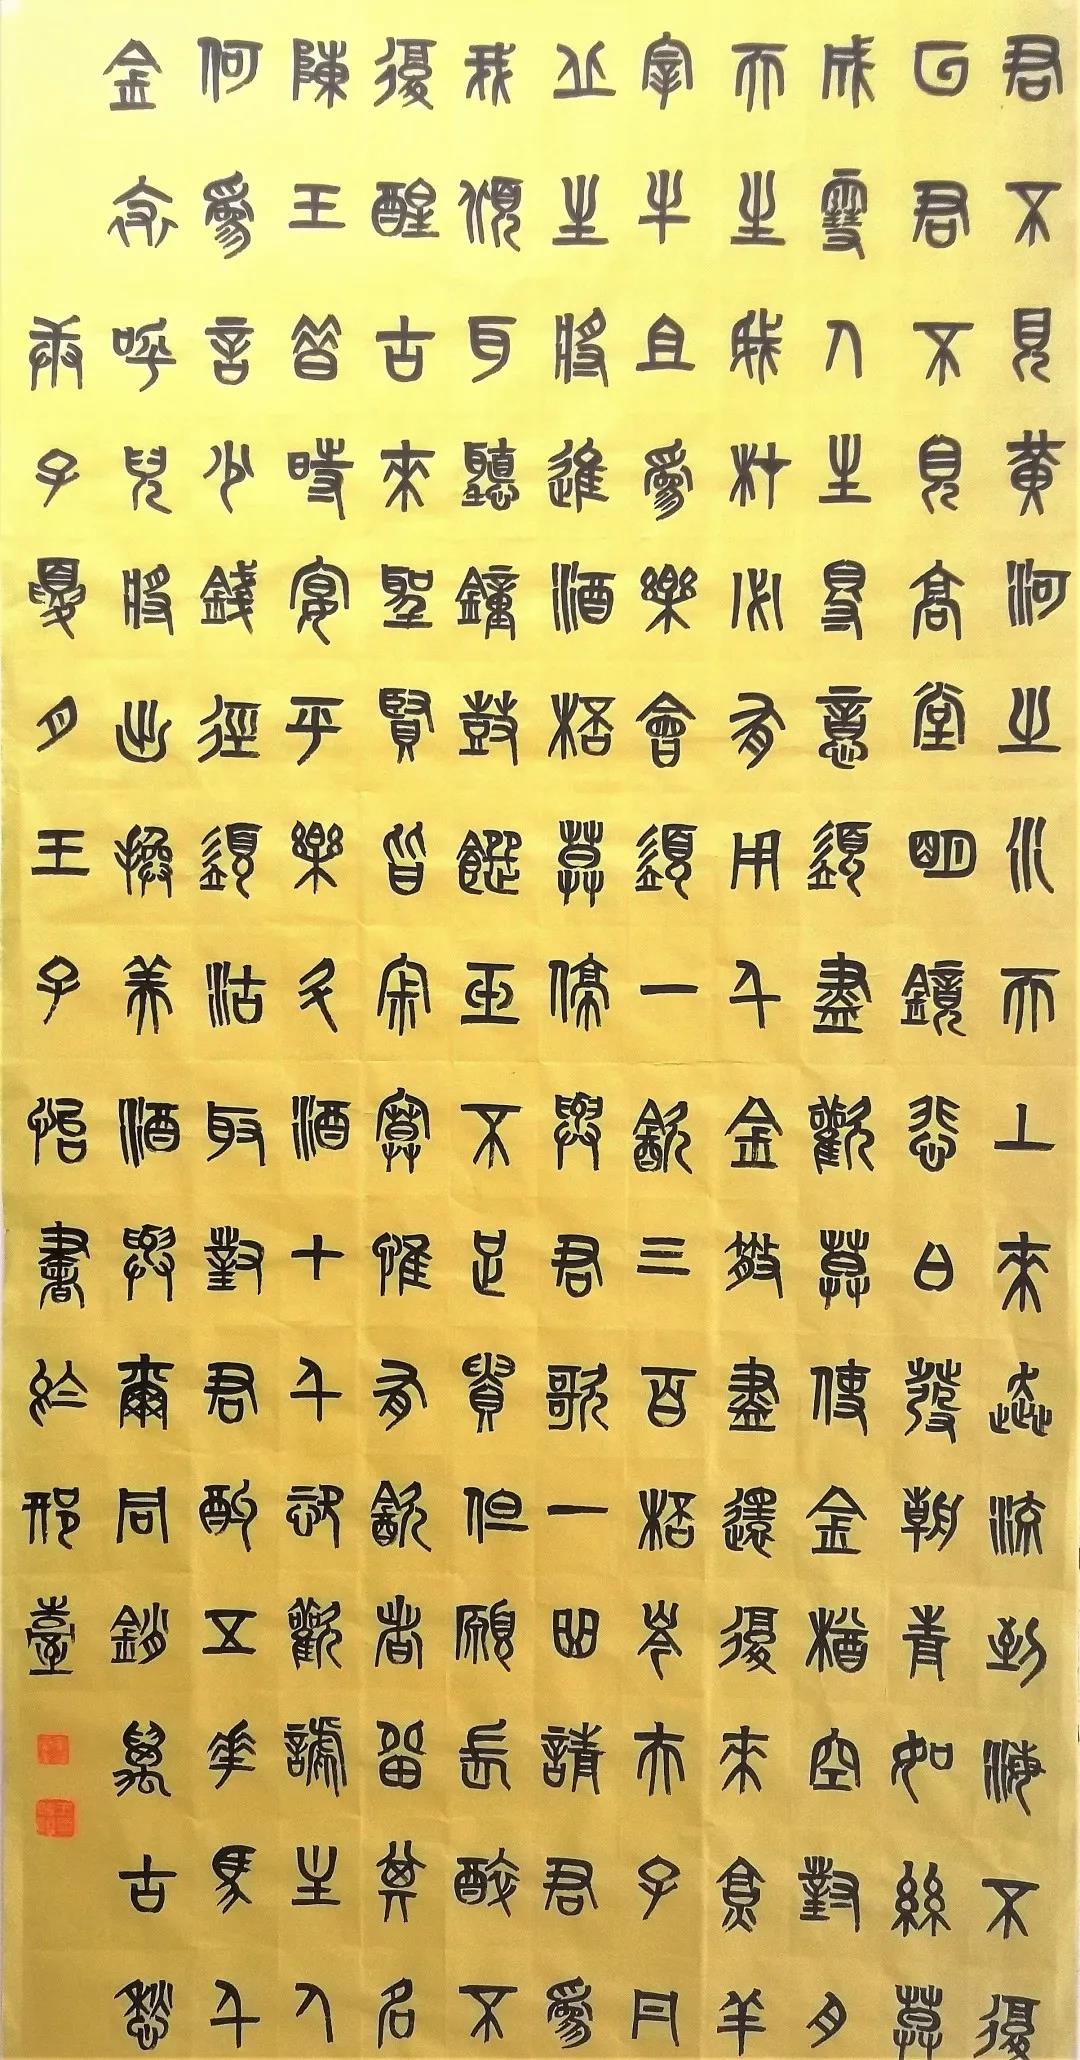 君不見黃河之水天上來奔流到海不復
回君不見高堂明鏡悲白髮朝青如絲暮
成雪人生得意須盡歡莫使金樽空對月
天生我材必有用千金散盡還復來烹羊
宰牛且為樂會須一飲三百杯岑夫子丹
丘生將進酒杯莫停與君歌一曲請君為
我傾耳聽鐘鼓饌玉不足貴但願長醉不
復醒古來聖賢皆寂寞惟有飲者留其名
陳王昔時宴平樂斗酒十千恣歡謔主人
何為言少錢徑須沽取對君酌五花馬千
金裘呼兒將出換美酒與爾同銷萬古愁
庚子夏月王子怡書於邢臺